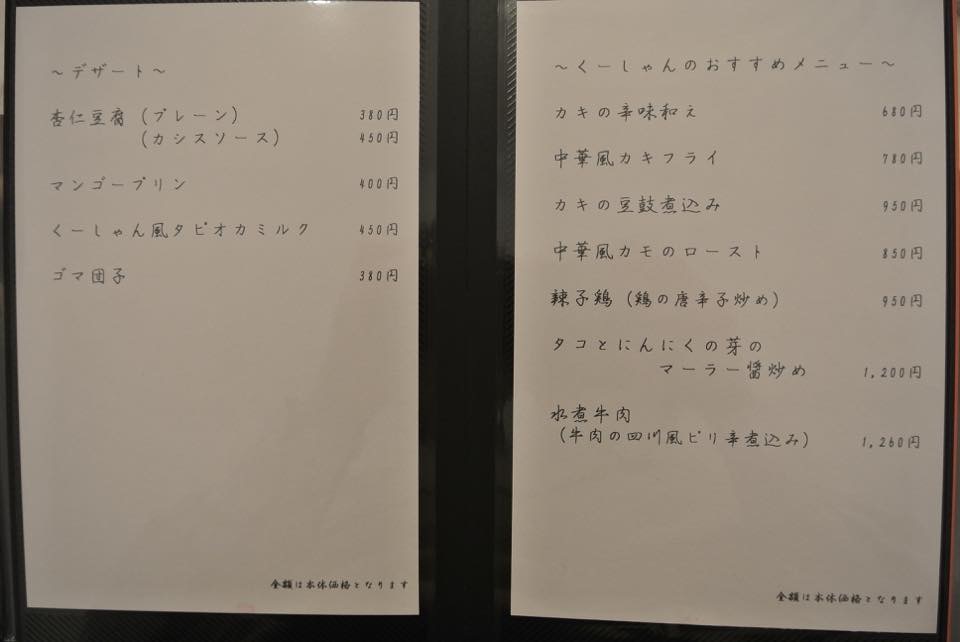 ～デザート～
杏仁豆腐（プレーン） 380円
（カシスソース） 450円
マンゴープリン 400円
くーしゃん風タピオカミルク 450円
ゴマ団子 380円
金額は本体価格となります
～くーしゃんのおすすめメニュー～
カキの辛味和え 680円
中華風カキフライ 780円
カキの豆鼓煮込み 950円
中華風カモのロースト 850円
辣子鶏（鶏の唐辛子炒め） 950円
タコとにんにくの芽の
マーラー醤炒め 1,200円
水煮牛肉
（牛肉の四川風ピリ辛煮込み） 1,260円
金額は本体価格となります